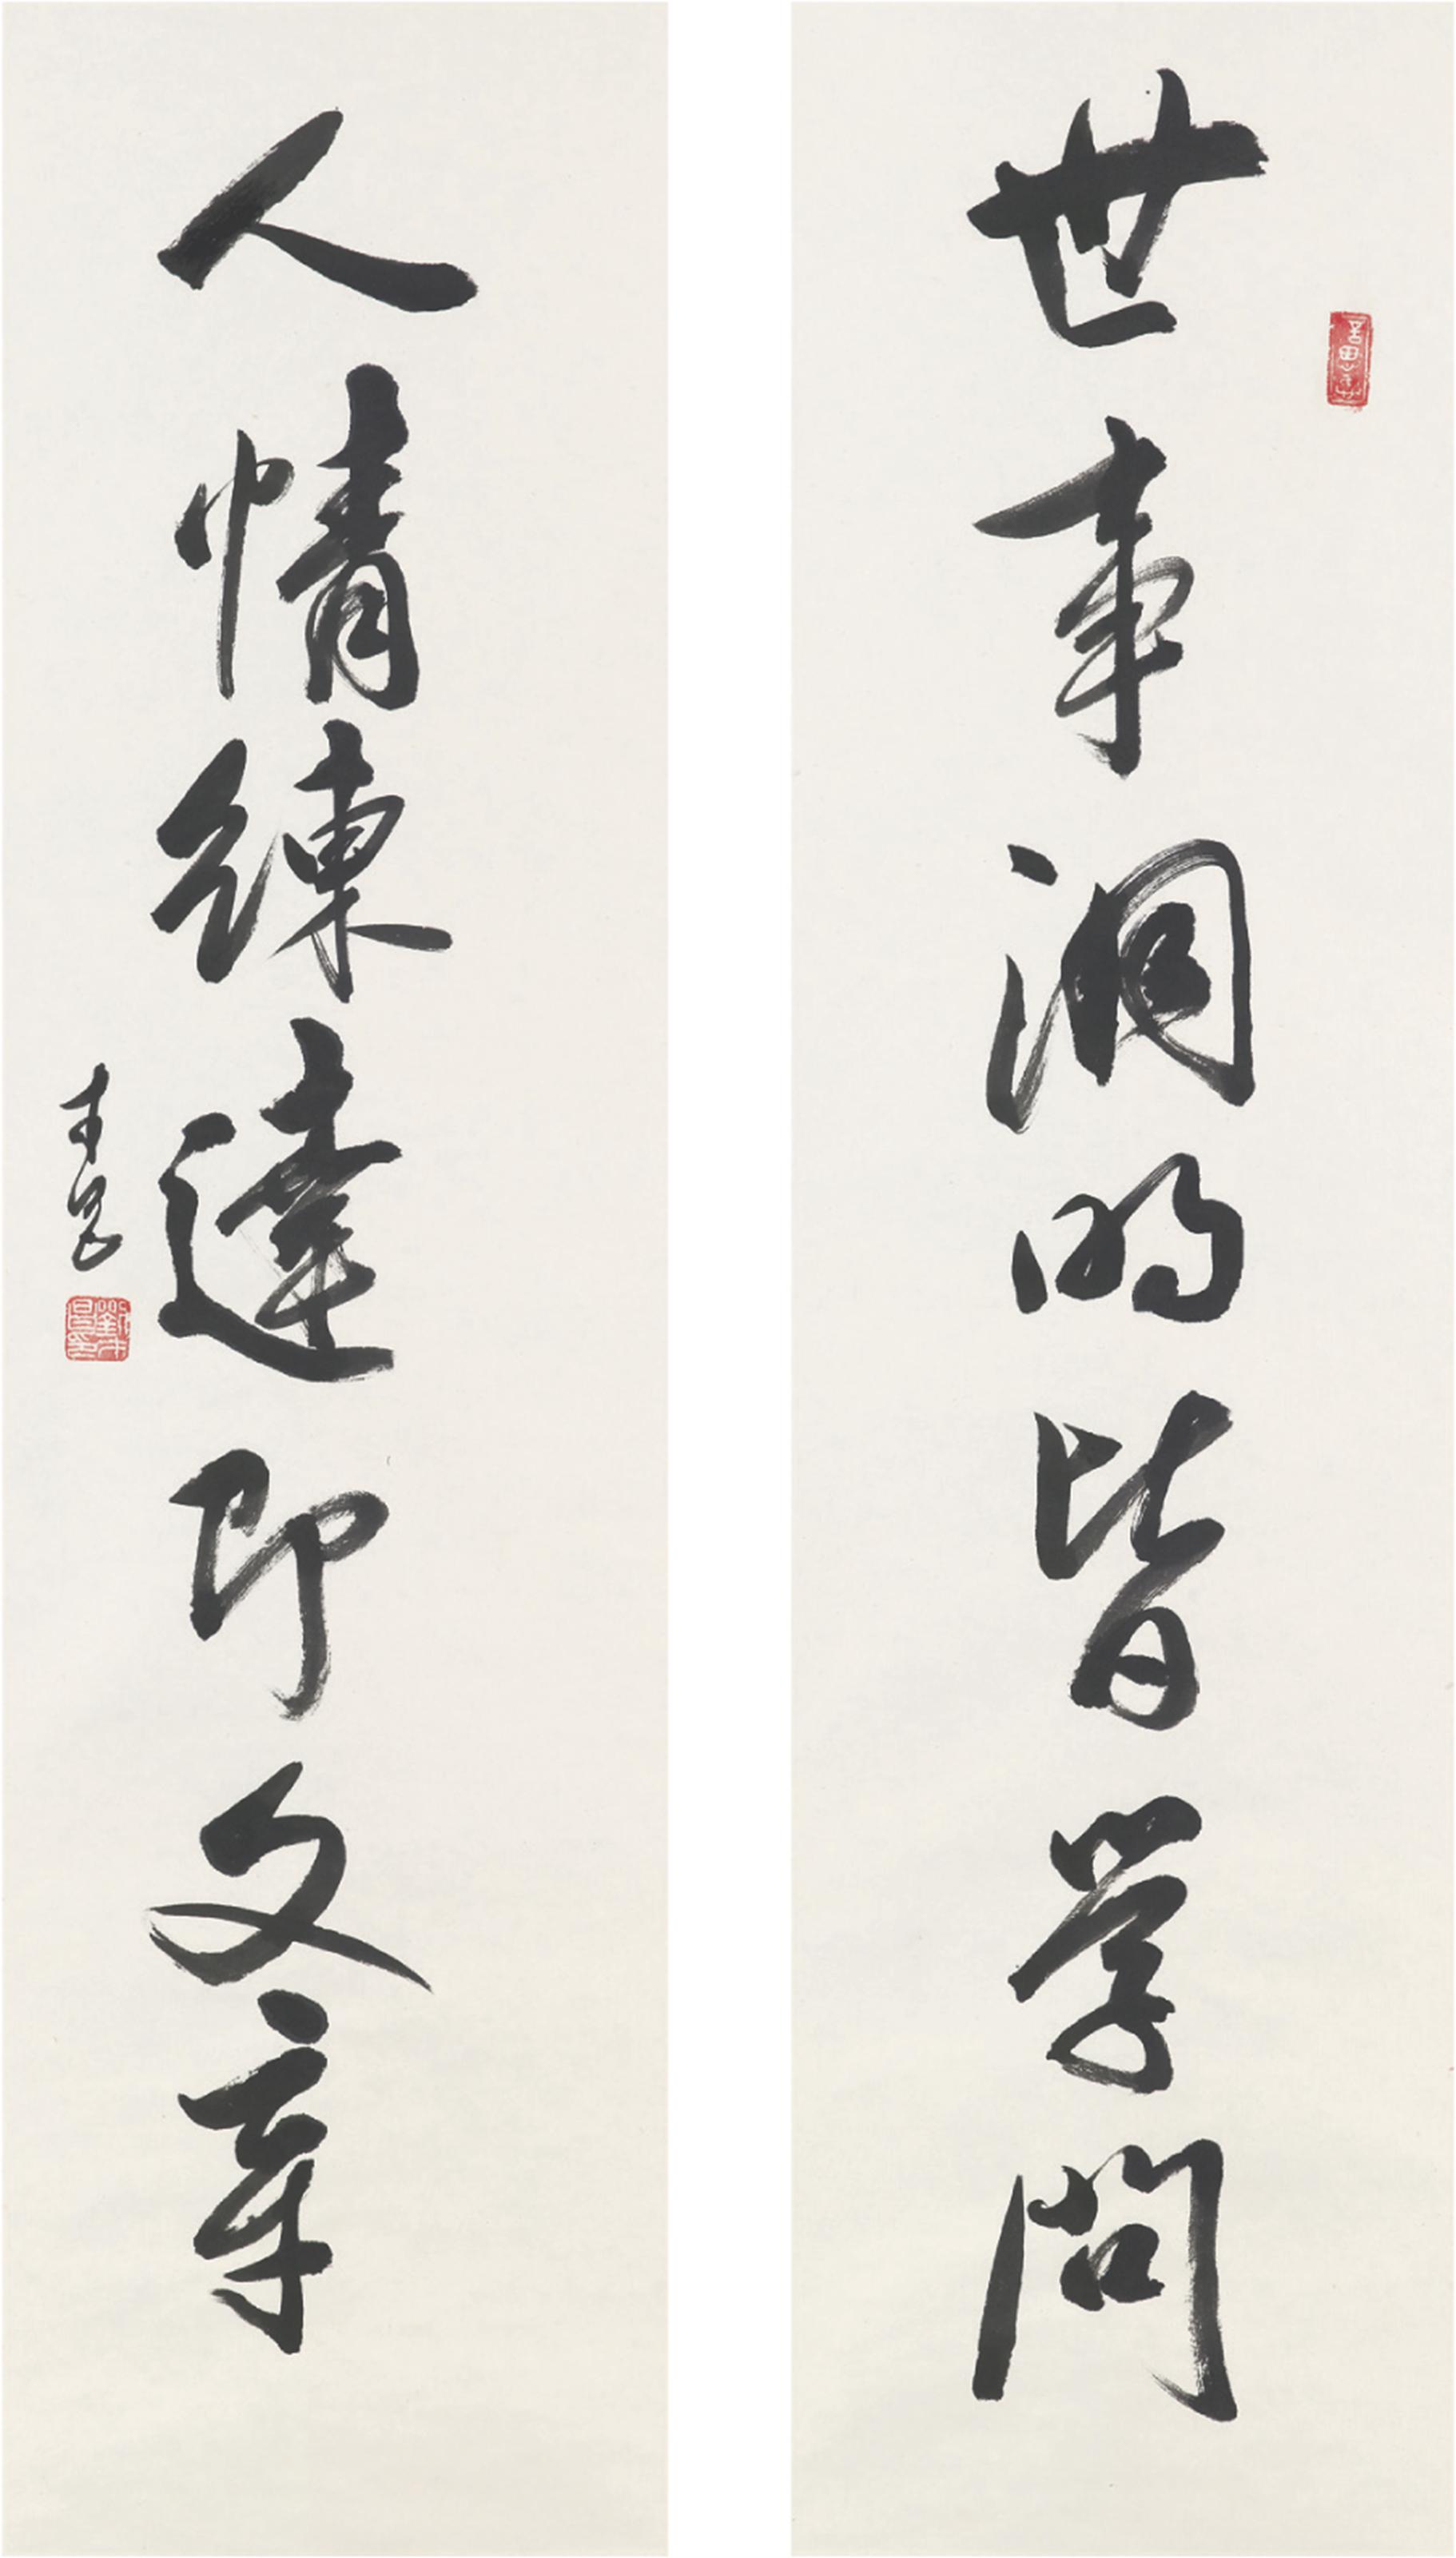 世事洞明皆学问
人情練達即文章